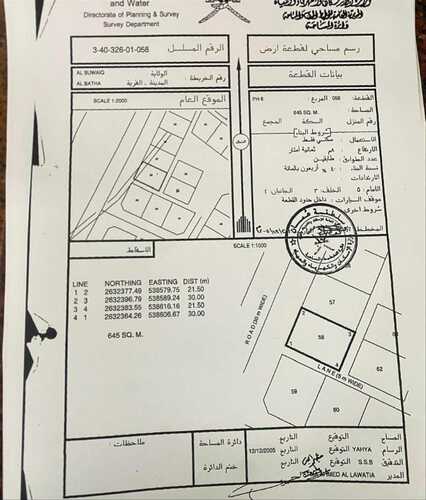 and Water
Directorate of Planning & Survey
Survey Department
3-40-326-01-058
الرقم المسلسل
رسم مساحي لقطعة ارض
AL BUWAIQ
AL BATHA
الولاية
المدينة . القرية
رقم الخريطة
بيانات القطعة
SCALE 1:2000
الموقع العام
PH 6
القطعة: 058
المربع:
المساحة:
645 SQ. M.
رقم المنزل
السكة
المجمع
شروط البناء
الاستعمال: سكني فقط
الارتفاع: ٨م ثمانية أمتار
عدد الطوابق: طابقين
نسبة البناء: ٤٠٪ أربعون بالمائة
الارتدادات
الامام: ٥
الخلف: ٣
الجانبان: ٤
موقف السيارات: داخل حدود القطعة
شروط اخرى:
المخطط
شمال
SCALE 1:1000
LINE NORTHING EASTING DIST (m)
1 2 2632377.49 538579.75 21.50
2 3 2632396.79 538589.24 30.00
3 4 2632383.55 538616.16 21.50
4 1 2632364.26 538606.67 30.00
645 SQ. M.
ROAD (30 m WIDE)
58
LANE (6 m WIDE)
57
59
60
ملاحظات:
دائرة المساحة
ختم الدائرة
12/12/2005
التاريخ
التوقيع
المساح
التاريخ
YAHYA
التوقيع
الرسام
التاريخ
S.S.B
التوقيع
المدقق
AHMED AL LAWATIA
المدير